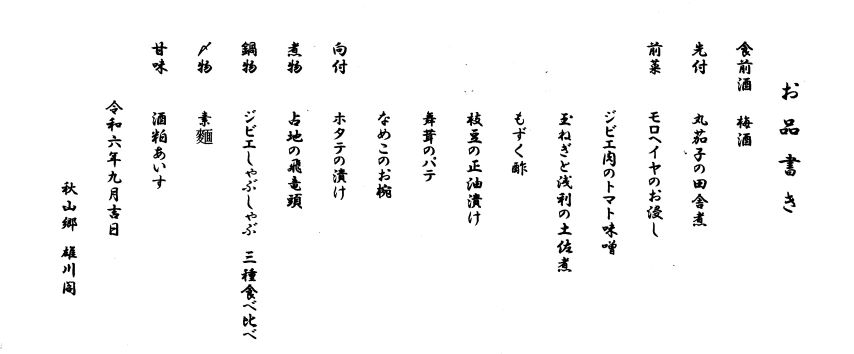 お品書き
食前酒　梅酒
先付　丸茄子の田舎煮
前菜　モロヘイヤのお浸し
ジビエ肉のトマト味噌
玉ねぎと浅利の土佐煮
もずく酢
枝豆の正油漬け
舞茸のパテ
なめこのお椀
向付　ホタテの漬け
煮物　占地の飛竜頭
鍋物　ジビエしゃぶしゃぶ　三種食べ比べ
〆物　素麺
甘味　酒粕あいす
令和六年九月吉日
秋山郷　雄川閣